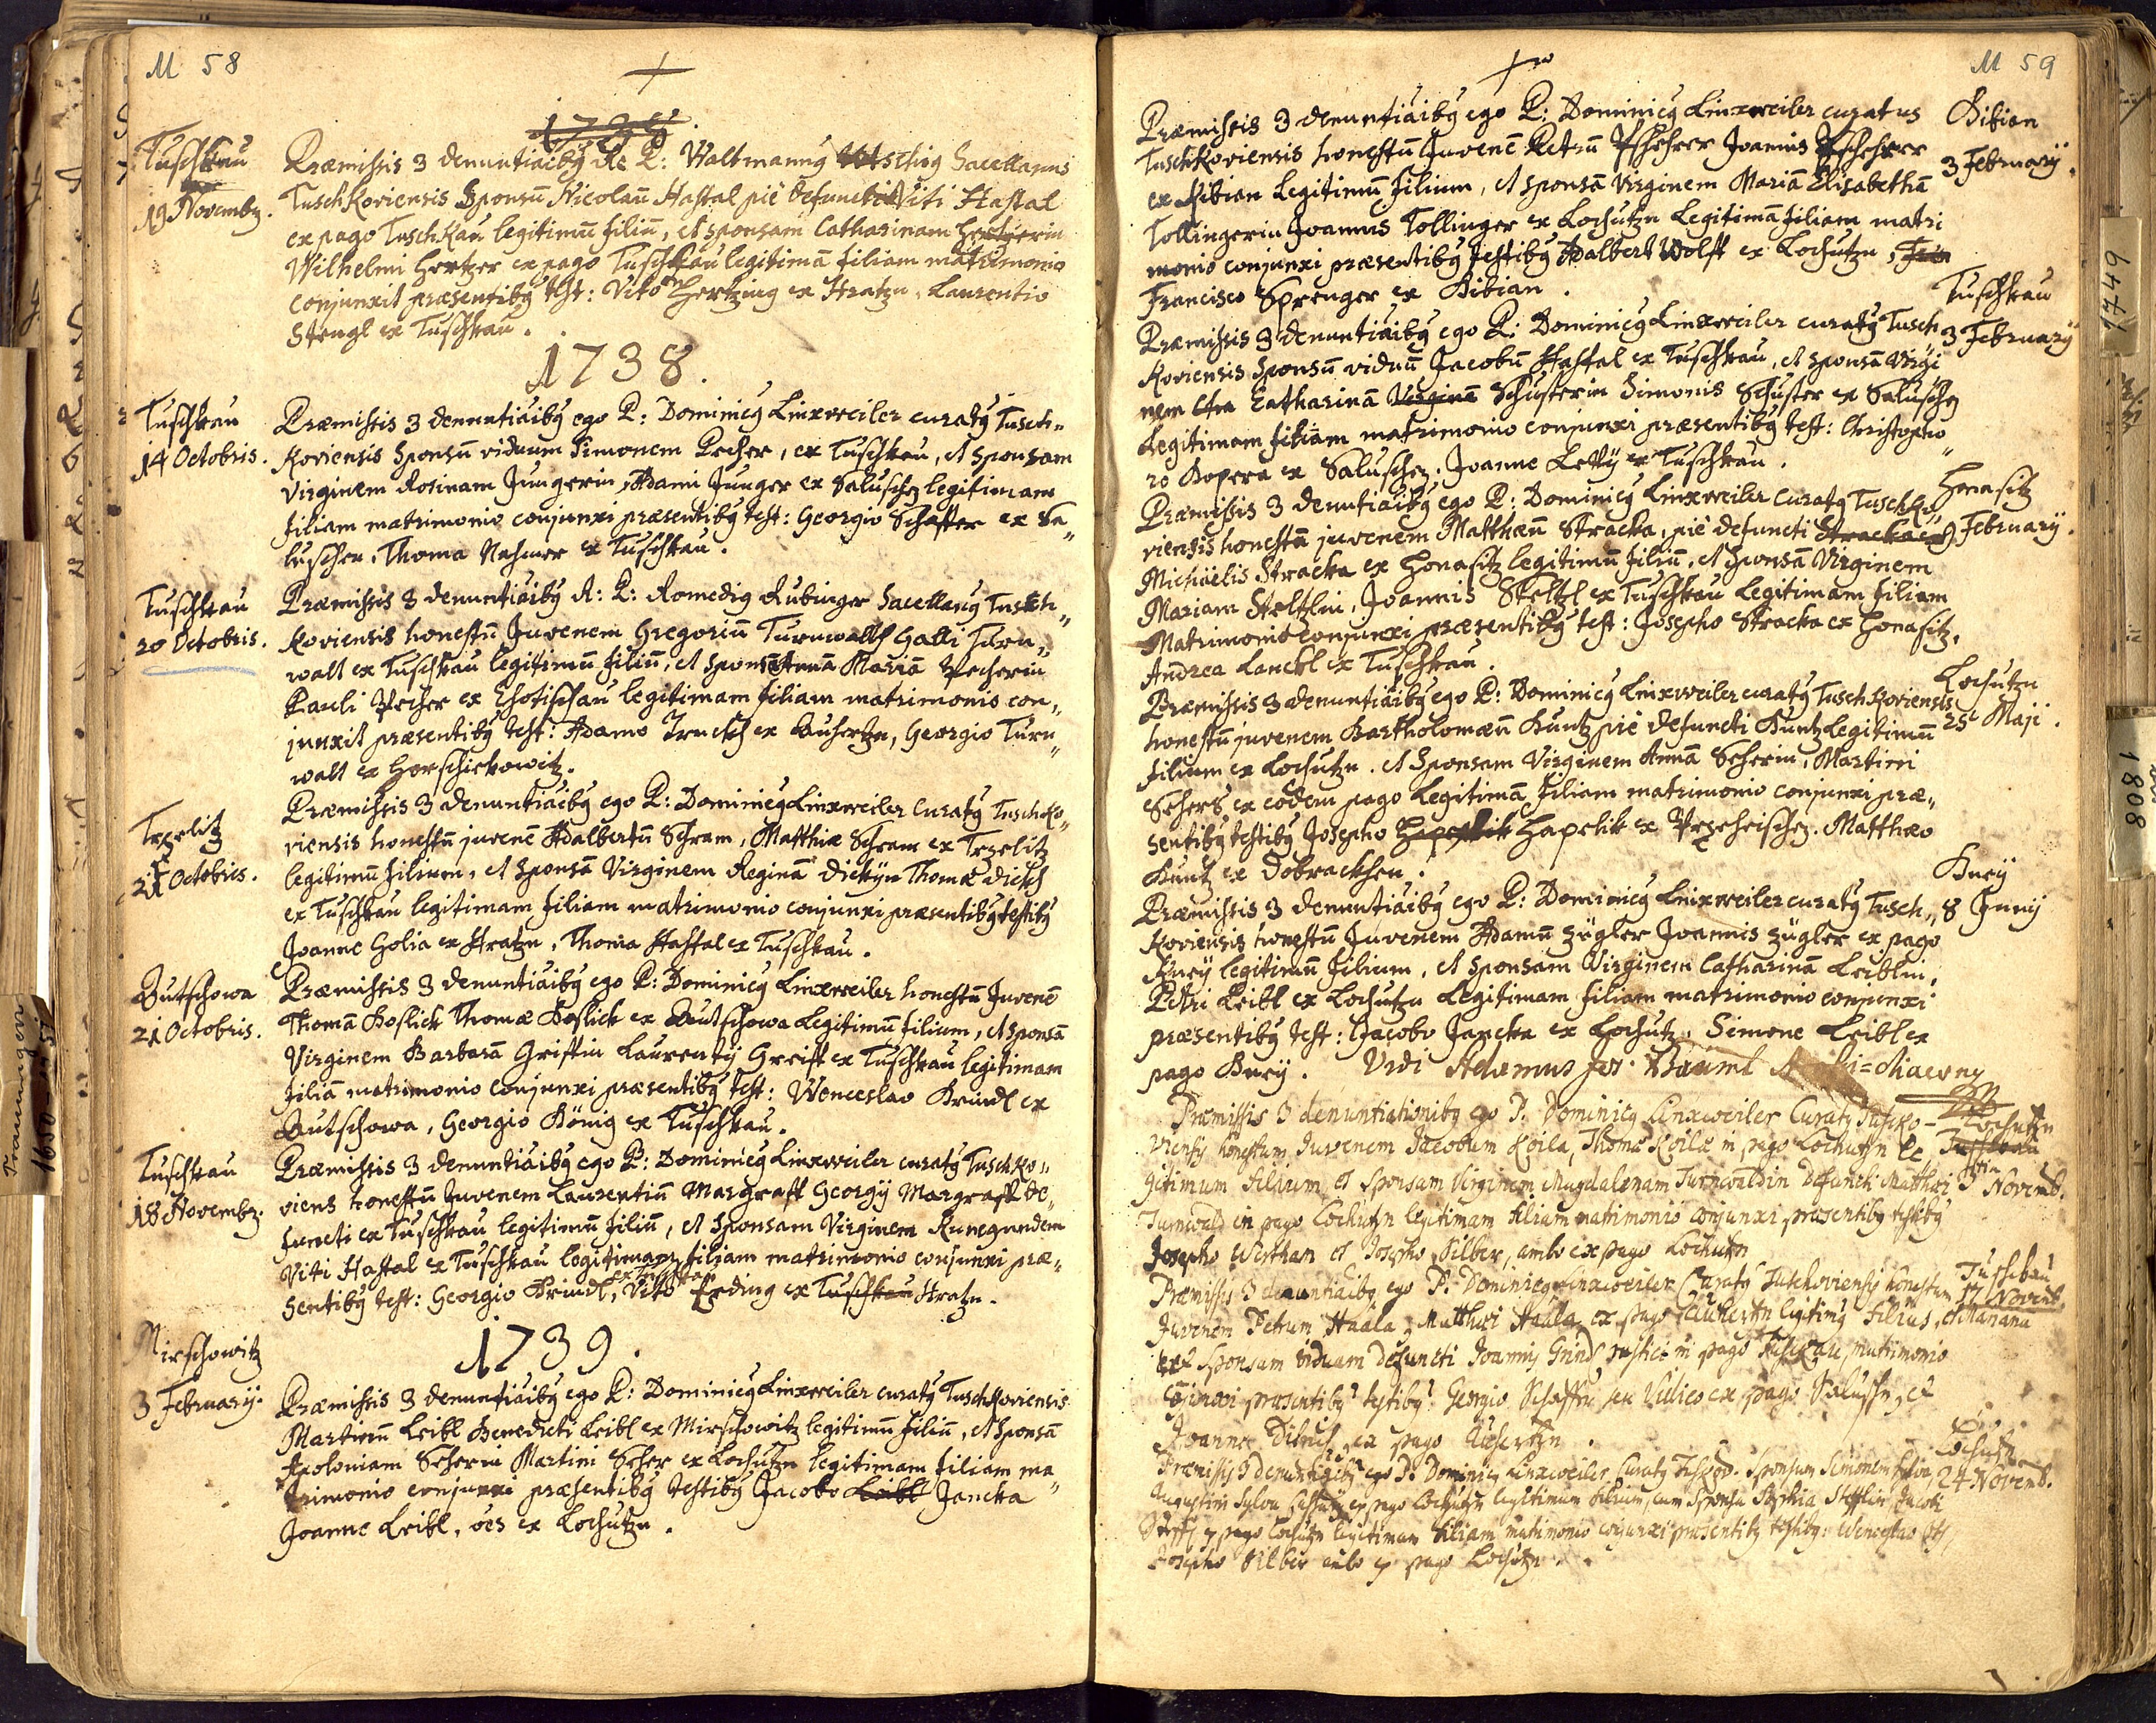 M 58
Tuschkau
19 Novembr.
Præmissis 3 denuntiaibq R: P: Waltmannq Sacellanus
Tuschkoviensis Sponsū Nicolaū Hastal piè defuncti Viti Hastal
ex pago Tuschkau legitimū filiū, et sponsam Catharinam Hertzerin
Wilhelmi Hertzer ex pago Tuschkau legitimā filiam matrimonio
conjunxit præsentibq test: Vito Hertzing ex Hratzn, Laurentio
Stengl ex Tuschkau.
1738.
Tuschkau
14 Octobris.
Præmissis 3 denuntiaibq ego P: Dominicq Linxweiler curatq Tusch„
koviensis Sponsū viduum Simonem Pecher, ex Tuschkau, et Sponsam
Virginem Rosinam Jungerin, Adami Junger ex Saluschez legitimam
filiam matrimonio conjunxi præsentibq test: Georgio Schaffer ex Sa„
luschen, Thoma Nahmer ex Tuschkau.
Tuschkau
20 Octobris.
Præmissis 3 denuntiaibq R: P: Romedig Rubinger Sacellanq Tusch„
koviensis honestū Juvenem Gregoriū Turnwalt Galli Turn„
walt ex Tuschkau legitimū filiū, et Sponsā Annā Mariā Pecherin
Pauli Pecher ex Chotischau legitimam filiam matrimonio con„
junxit præsentibq test: Adamo Irncksch ex Auhertzn, Georgio Turn„
walt ex Horschickowitz.
Trzelitz
21 Octobris.
Præmissis 3 denuntiaibq ego P: Dominicq Linxweiler Curatq Tuschko„
viensis honestū juvenē Adalbertū Schram, Matthiæ Schram ex Trzelitz
legitimū filium, et Sponsā Virginem Reginā Dickÿn Thomæ Dietsch
ex Tuschkau legitimam filiam matrimonio conjunxi præsentibq testibq
Joanne Golia ex Hratzn, Thoma Hastal ex Tuschkau.
Autschowa
21 Octobris.
Præmissis 3 denuntiaibq ego P: Dominicq Linxweiler honestū Juvenē
Thomā Koslick Thomæ Koslick ex Autschowa legitimū filium, et Sponsā
Virginem Barbarā Griftin Laurentÿ Greift ex Tuschkau legitimam
filiā matrimonio conjunxi præsentibq test: Wenceslao Brindl ex
Autschowa, Georgio König ex Tuschkau.
Tuschkau
18 Novembr.
Præmissis 3 denuntiaibq ego P: Dominicq Linxweiler curatq Tuschko„
viens honestū Juvenem Laurentiū Margraff Georgÿ Margraff de„
functi ex Tuschkau legitimū filiū, et Sponsam Virginem Kunegundem
Viti Hastal ex Tuschkau legitimam filiam matrimonio conjunxi præ„
sentibq test: Georgio Brindl, ex Tuschkau Vito Erding ex Tuschkau Hratzn.
1739.
Mirschowitz
3 Februarÿ.
Præmissis 3 denuntiaibq ego P: Dominicq Linxweiler curatq Tuschkoviensis
Martinū Leibl Benedicti Leibl ex Mirschowitz legitimū filiū, et Sponsā
Apoloniam Scherin Martini Scher ex Lochutzn legitimam filiam ma„
trimonio conjunxi præsentibq testibq Jacobo Leibl Jancka
Joanne Leibl, oēs ex Lochutzn.
M 59
Præmissis 3 denuntiaibq ego P: Dominicq Linxweiler curatus
Tuschkoviensis honestū Juvenē Petrū Joannis
ex Bibian Legitimū filium, et sponsā Virginem Mariā Elisabethā
Tollingerin Joannis Tollinger ex Lochutzn Legitimā filiam matri
monio conjunxi præsentibq testibq Adalbert Wolff ex Lochutzn,
Francisco Sprenger ex Bibian.
Bibian
3 Februarÿ.
Præmissis 3 denuntiaibq ego P: Dominicq Linxweiler curatq Tusch„
koviensis Sponsū viduū Jacobū Hastal ex Tuschkau, et Sponsā Virgi
nem Catharinā Virginā Schusterin Simonis Schuster ex Saluschez
Legitimam filiam matrimonio conjunxi præsentibq test: Christopho„
ro Kopera ex Saluschez, Joanne Lettÿ ex Tuschkau.
Tuschkau
3 Februarÿ
Præmissis 3 denuntiaibq ego P: Dominicq Linxweiler Curatq Tuschko„
viensis honestū juvenem Matthæū Stracka, piè defuncti Stracka
Michäelis Stracka ex Honasitz legitimū filiū, et Sponsā Virginem
Mariam Steltzlin, Joannis Steltzl ex Tuschkau Legitimam filiam
Matrimonio conjunxi præsentibq test: Josepho Stracka ex Honasitz,
Andrea Lanckl ex Tuschkau.
Honasitz
9 Februarÿ.
Præmissis 3 denuntiaibq ego P: Dominicq Linxweiler curatq Tuschkoviensis
honestū juvenem Bartholomæū Kuntz piè defuncti Kuntz Legitimū
filium ex Lochutzn. et Sponsam Virginem Annā Scherin, Martini
Schers ex eodem pago Legitimā filiam matrimonio conjunxi præ„
sentibq testibq Josepho Hapeslik Hapelik ex Przeheischez. Matthæo
Kuntz ex Dobracksen.
Lochutzn
25 Maji.
Præmissis 3 denuntiaibq ego P: Dominicq Linxweiler curatq Tusch„
koviensis honestū Juvenem Adamū Zügler Joannis Zügler ex pago
Knÿ legitimū filium, et Sponsam Virginem Catharinā Leiblin,
Petri Leibl ex Lochutzn Legitimam filiam matrimonio conjunxi
præsentibq test: Jacobo Jancka ex Lochutz. Simone Leibl ex
pago Knÿ. Vidi Adamus Jos: Bäuml
8 Junÿ
Præmissis 3 denuntiationibq ego P. Dominicq Linxweiler Curatq Tusko-
viensis honestum Juvenem Jacobum Koila, Thomæ Koilæ in pago Lochutzn le
gitimum filium et Sponsam Virginem Magdalenam Turnwaldin Defuncti Matthæi
Turnwald in pago Lochutzn legitimam filiam matrimonio conjunxi præsentibq testibq
Josepho Westhan et Josepho Silber, ambo ex pago Lochutzn
Lochutzn
Tuschkau
Novemb.
Præmissis 3 denuntiaibq ego P. Dominicq Linxweiler Curatq Tutchoviensis honestum
Juvenem Petrum Haala, Matthæi Haala ex pago Auhertzn legitimq filius, et Mariana
Sponsam viduam defuncti Joannis Gründ rustici in pago Tuschkau, matrimonio
conjunxi præsentibq testibq Georgio Schaffer seu Villico ex pago Saluschn, et
Joanne Ditrich, ex pago Auhertzn.
Tuschkau
17 Novemb.
Præmissis 3 denuntiaibq ego P. Dominicq Linxweiler, Curatq Tuskov. Sponsum Simonem
Augustini ex pago Lochutzn legitimum filium, cum Sponsa Sophia Jacobi
ex pago Lochutzn legitimam filiam matrimonio conjunxi præsentibq testibq: Wenceslao
Josepho Silber ambo ex pago Lochutzn.
Lochutzn
24 Novemb.
Trauungen
1749
1808